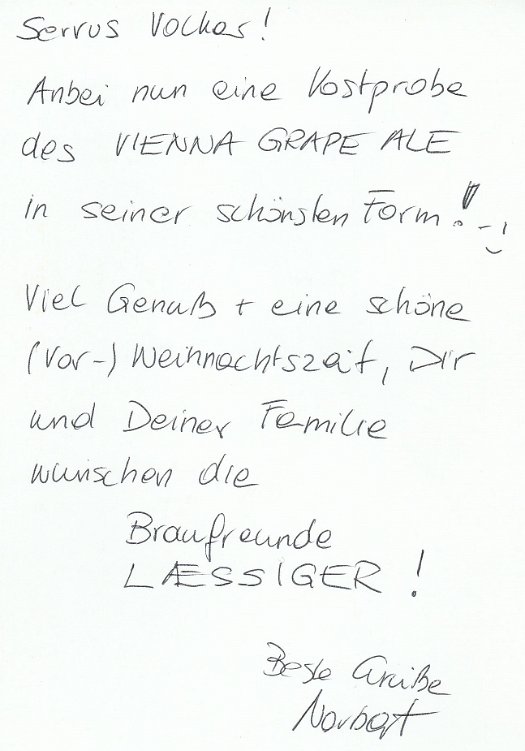 Servus Volker!
Anbei nun eine Kostprobe
des VIENNA GRAPE ALE
in seiner schönsten Form! :-)
Viel Genuß + eine schöne
(Vor-) Weihnachtszeit, Dir
und Deiner Familie
wünschen die
Braufreunde
LÆSSIGER !
Beste Grüße
Norbert